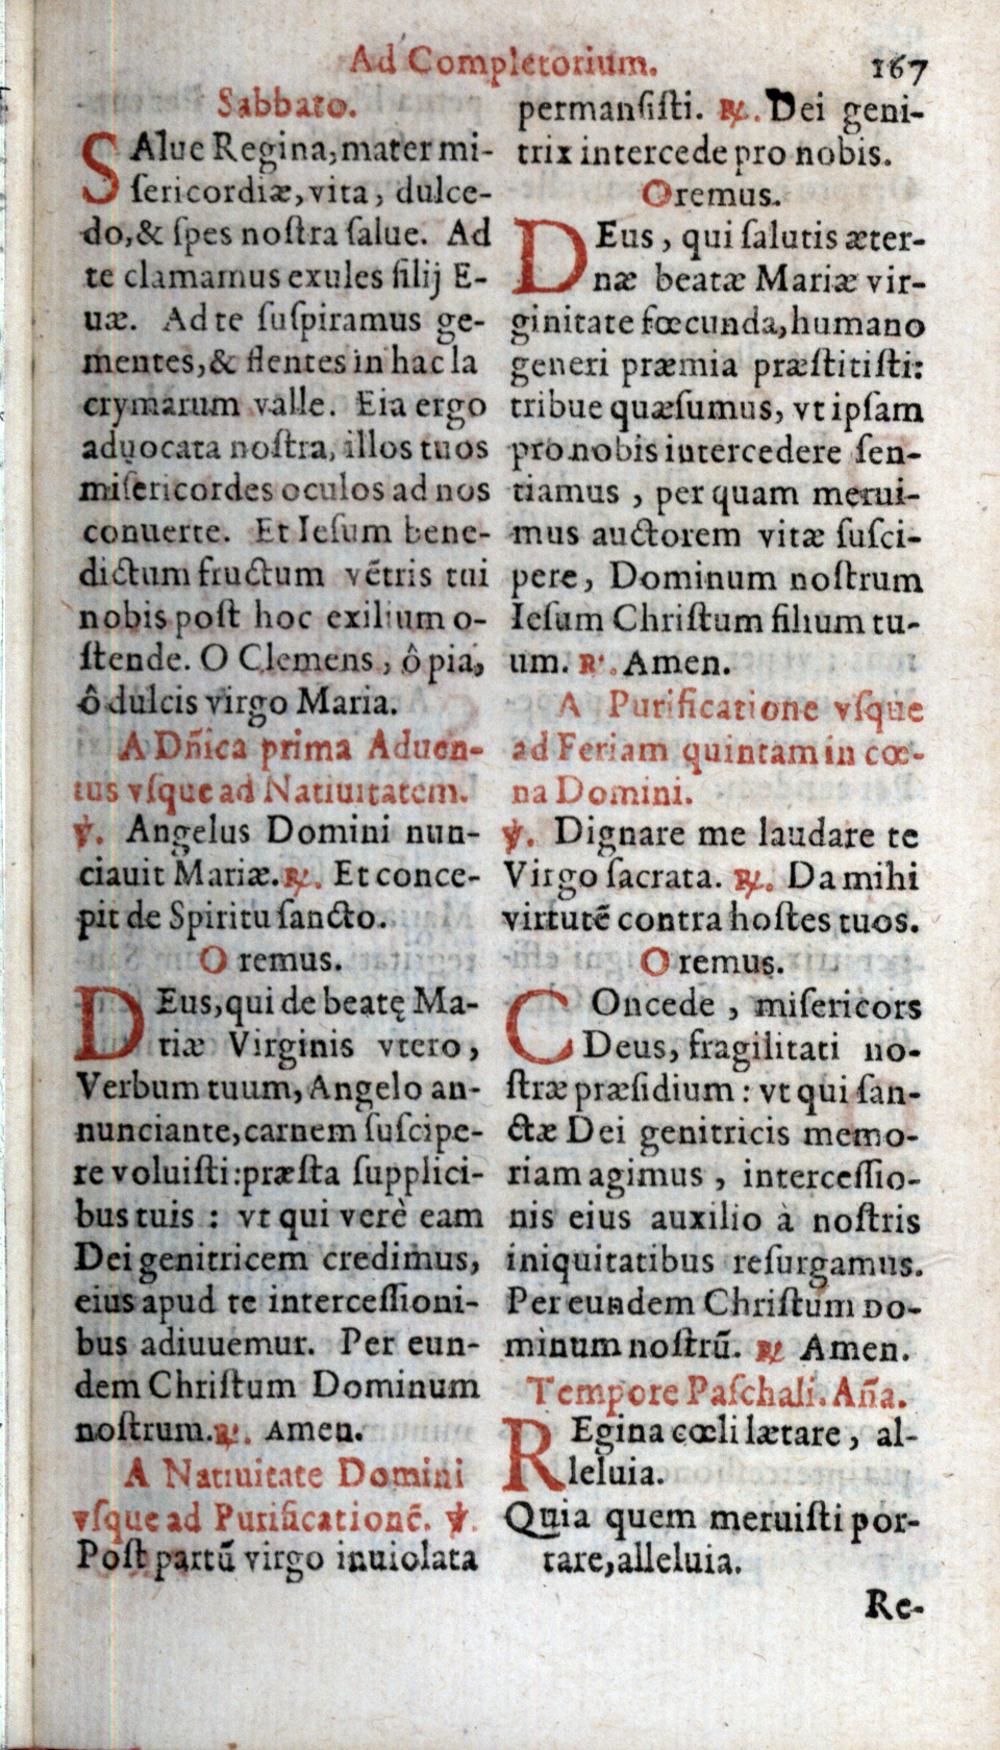 Ad Completorium. 167
Sabbato.
SAlue Regina, mater mi-
ſericordiæ, vita, dulce-
do, & ſpes noſtra ſalue. Ad
te clamamus exules filij E-
uæ. Ad te ſuſpiramus ge-
mentes, & flentes in hac la
crymarum valle. Eia ergo
aduocata noſtra, illos tuos
miſericordes oculos ad nos
conuerte. Et Ieſum bene-
dictum fructum vẽtris tui
nobis poſt hoc exilium o-
ſtende. O Clemens, ô pia,
ô dulcis virgo Maria.
A Dñica prima Aduen-
tus vſque ad Natiuitatem.
℣. Angelus Domini nun-
ciauit Mariæ. ℟. Et conce-
pit de Spiritu ſancto.
Oremus.
DEus, qui de beatę Ma-
riæ Virginis vtero,
Verbum tuum, Angelo an-
nunciante, carnem ſuſcipe-
re voluiſti: præſta ſupplici-
bus tuis : vt qui verè eam
Dei genitricem credimus,
eius apud te interceſſioni-
bus adiuuemur. Per eun-
dem Chriſtum Dominum
noſtrum. ℟. Amen.
A Natiuitate Domini
vſque ad Purificationẽ. ℣.
Poſt partũ virgo inuiolata
permanſiſti. ℟. Dei geni-
trix intercede pro nobis.
Oremus.
DEus, qui ſalutis æter-
næ beatæ Mariæ vir-
ginitate fœcunda, humano
generi præmia præſtitiſti:
tribue quæſumus, vt ipſam
pro nobis intercedere ſen-
tiamus, per quam merui-
mus auctorem vitæ ſuſci-
pere, Dominum noſtrum
Ieſum Chriſtum filium tu-
um. ℟. Amen.
A Purificatione vſque
ad Feriam quintam in cœ-
na Domini.
℣. Dignare me laudare te
Virgo ſacrata. ℟. Da mihi
virtutẽ contra hoſtes tuos.
Oremus.
COncede, miſericors
Deus, fragilitati no-
ſtræ præſidium : vt qui ſan-
ctæ Dei genitricis memo-
riam agimus, interceſſio-
nis eius auxilio à noſtris
iniquitatibus reſurgamus.
Per eundem Chriſtum Do-
minum noſtrũ. ℟ Amen.
Tempore Paſchali. Aña.
REgina cœli lætare, al-
leluia.
Quia quem meruiſti por-
tare, alleluia.
Re-